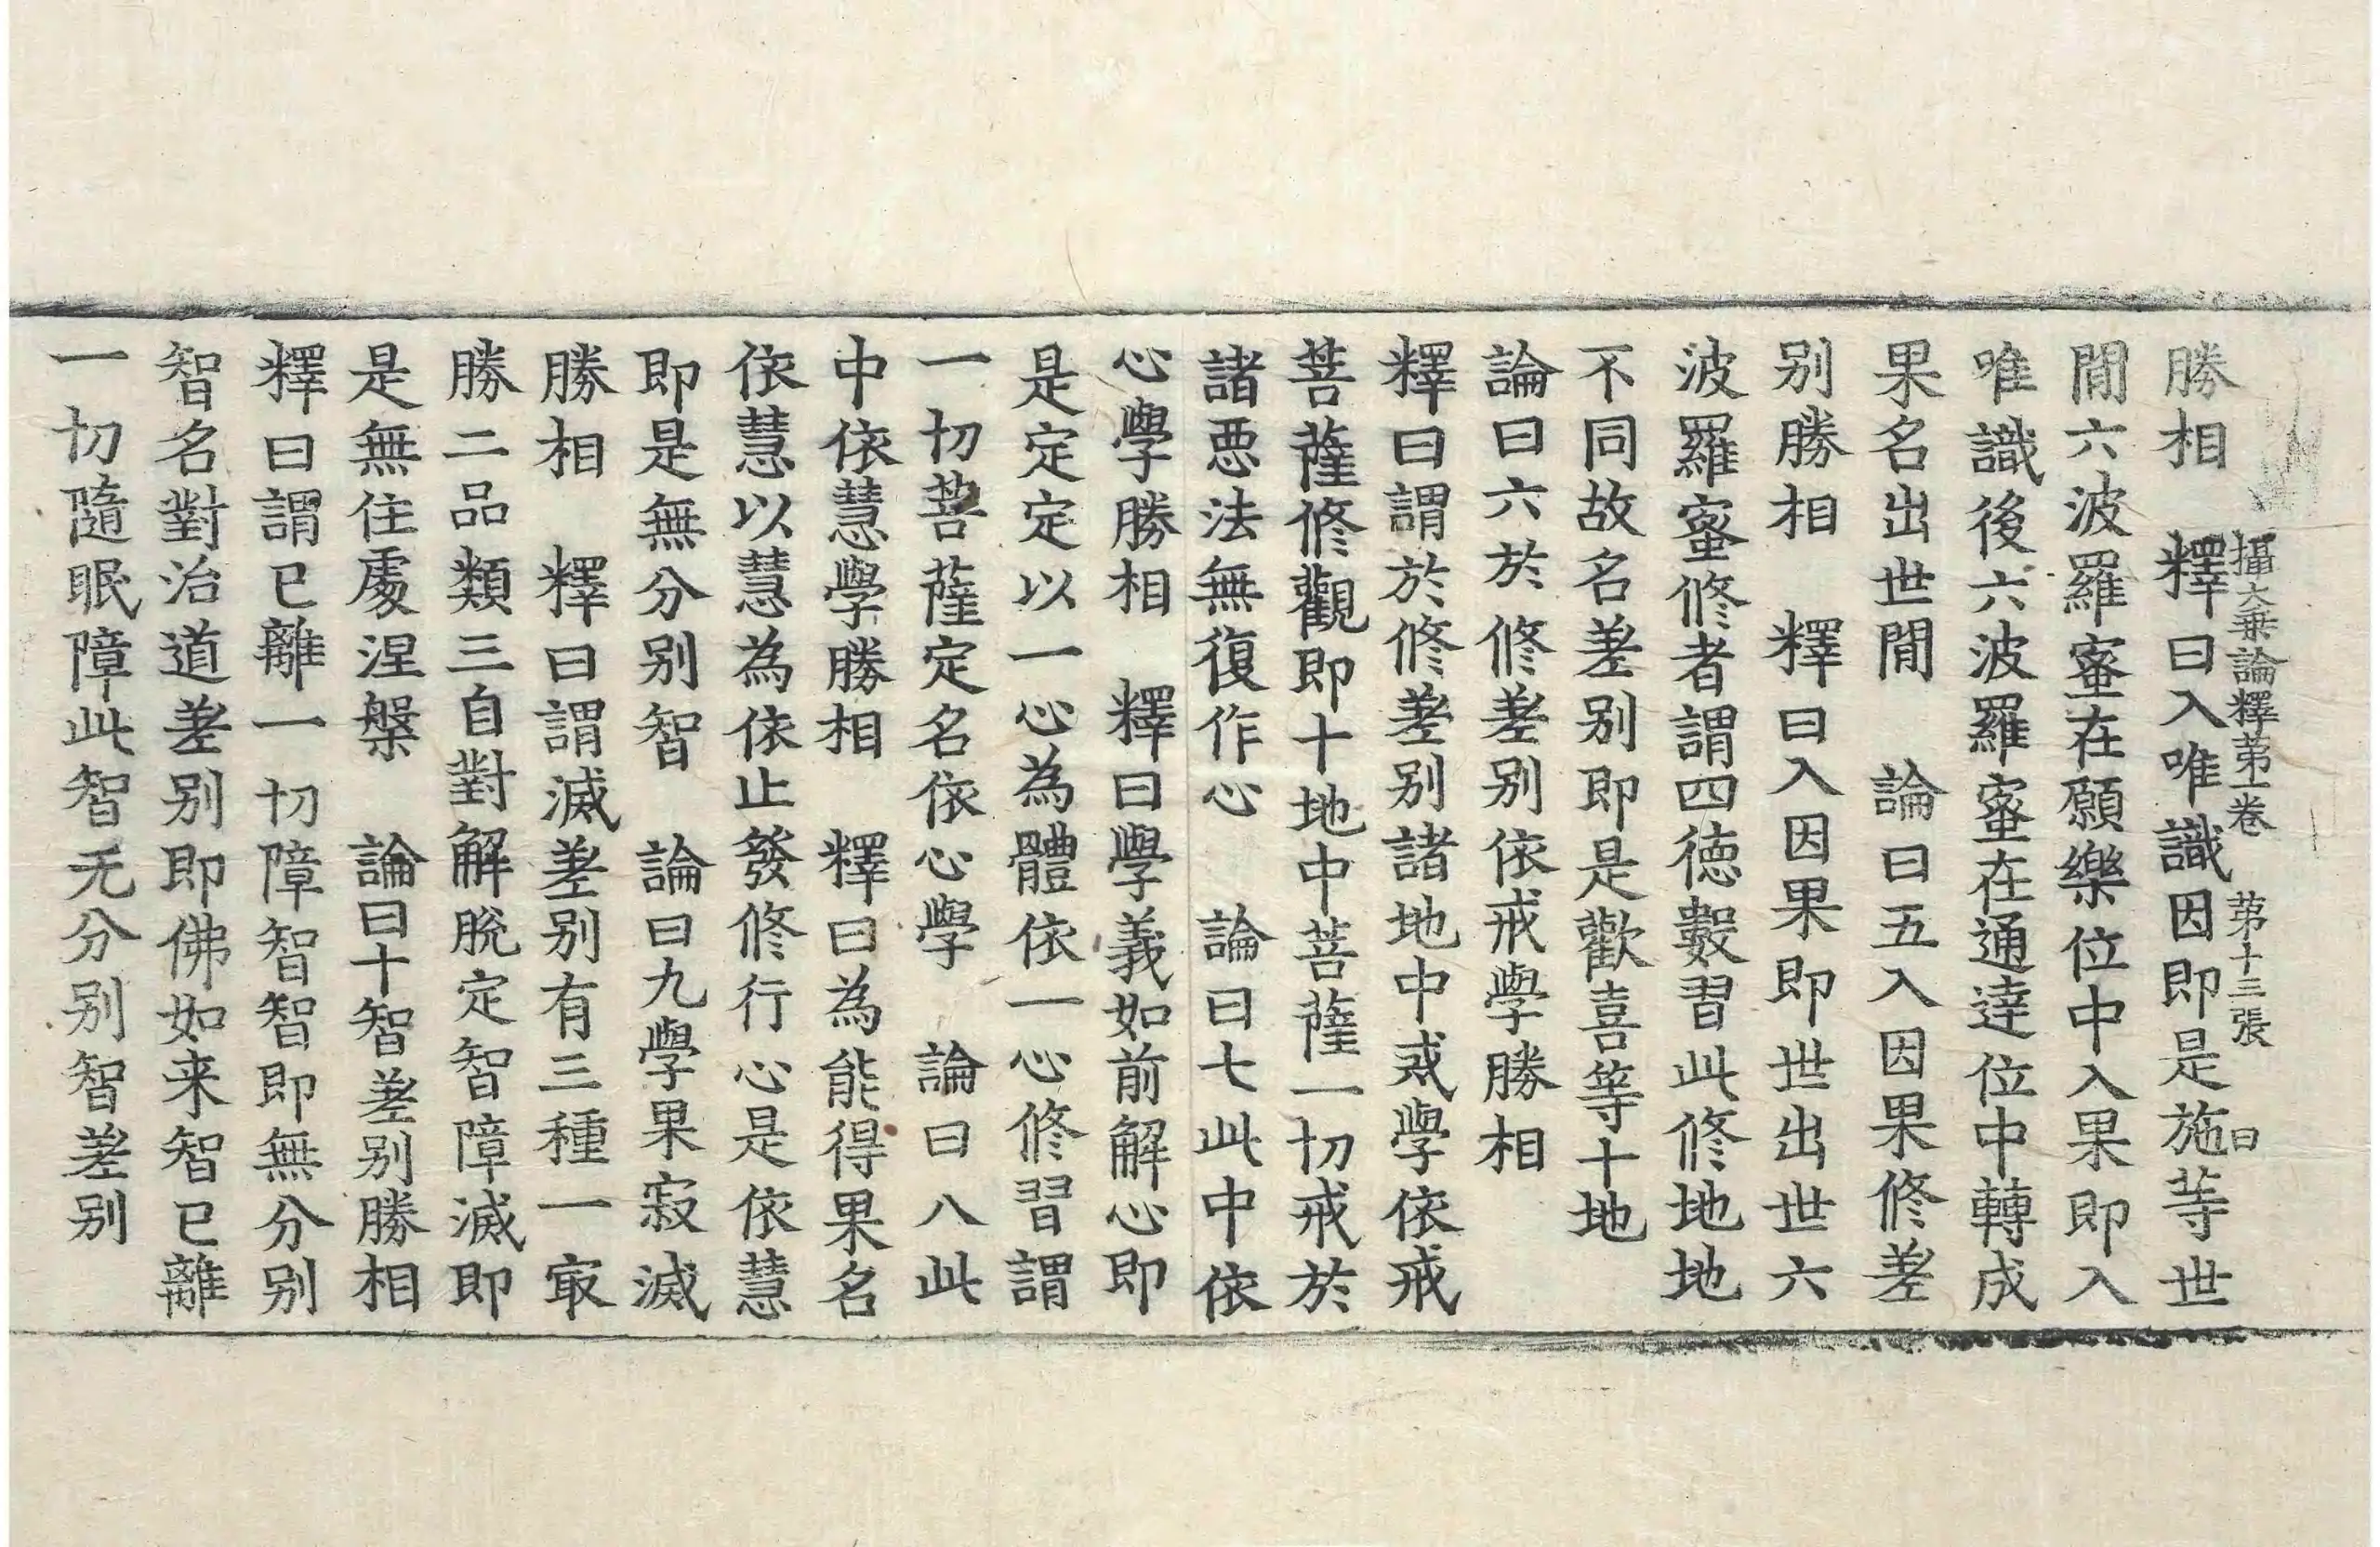 攝大乗論釋苐一卷　苐十三張　曰
勝相　釋曰入唯識因即是施等世
間六波羅蜜在願樂位中入果即入
唯識後六波羅蜜在通達位中轉成
果名出世間　論曰五入因果修差
别勝相　釋曰入因果即世出世六
波羅蜜修者謂四徳數習此修地地
不同故名差别即是歡喜等十地
論曰六於修差别依戒學勝相
釋曰謂於修差别諸地中戒學依戒
菩薩修觀即十地中菩薩一切戒於
諸惡法無復作心　論曰七此中依
心學勝相　釋曰學義如前解心即
是定定以一心為體依一心修習謂
一切菩薩定名依心學　論曰八此
中依慧學勝相　釋曰為能得果名
依慧以慧為依止發修行心是依慧
即是無分别智　論曰九學果寂滅
勝相　釋曰謂滅差别有三種一㝡
勝二品類三自對解脫定智障滅即
是無住處涅槃　論曰十智差别勝相
釋曰謂已離一切障智智即無分别
智名對治道差别即佛如来智已離
一切隨眠障此智无分别智差别